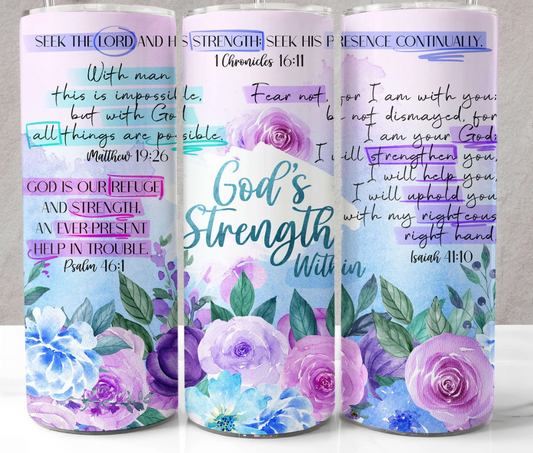 SEEK THE LORD AND HIS STRENGTH; SEEK HIS PRESENCE CONTINUALLY.
1 Chronicles 16:11
With man
this is impossible,
but with God
all things are possible.
Matthew 19:26
GOD IS OUR REFUGE
AND STRENGTH,
AN EVER PRESENT
HELP IN TROUBLE.
Psalm 46:1
God's
Strength
Within
Fear not, for I am with you;
be not dismayed, for
I am your God;
I will strengthen you,
I will help you,
I will uphold you
with my righteous
right hand
Isaiah 41:10